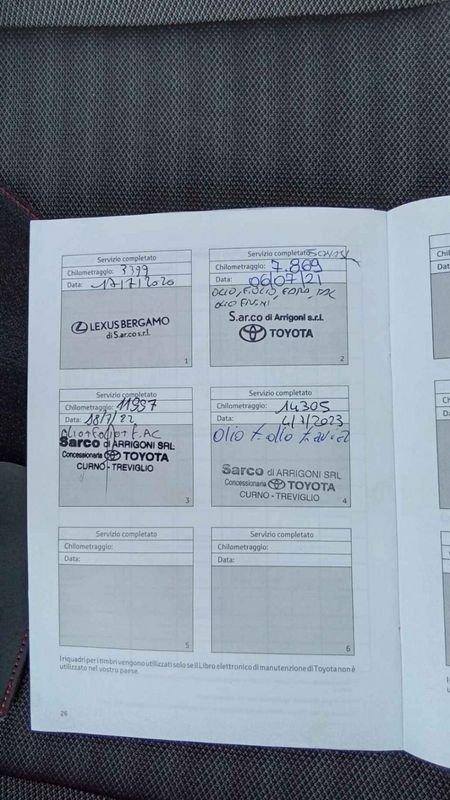 Servizio completato
Chilometraggio: 3399
Data: 17/7/2020
LEXUS BERGAMO
di S.ar.co s.r.l.
1
Servizio completato
Chilometraggio: 7.869
Data: 06/07/21
OLIO, F.OLIO,
OLIO FRENI,
S.ar.co di Arrigoni s.r.l.
TOYOTA
2
Servizio completato
Chilometraggio: 11957
Data: 18/7/22
OLIO + F.OLIO + F. AC
Sarco di ARRIGONI SRL
Concessionaria TOYOTA
CURNO - TREVIGLIO
3
Servizio completato
Chilometraggio: 14305
Data: 4/7/2023
OLIO F. OLIO
Sarco di ARRIGONI SRL
Concessionaria TOYOTA
CURNO - TREVIGLIO
4
Servizio completato
Chilometraggio:
Data:
5
Servizio completato
Chilometraggio:
Data:
6
I riquadri per i timbri vengono utilizzati solo se il Libro elettronico di manutenzione di Toyota non è
utilizzato nel vostro paese.
26